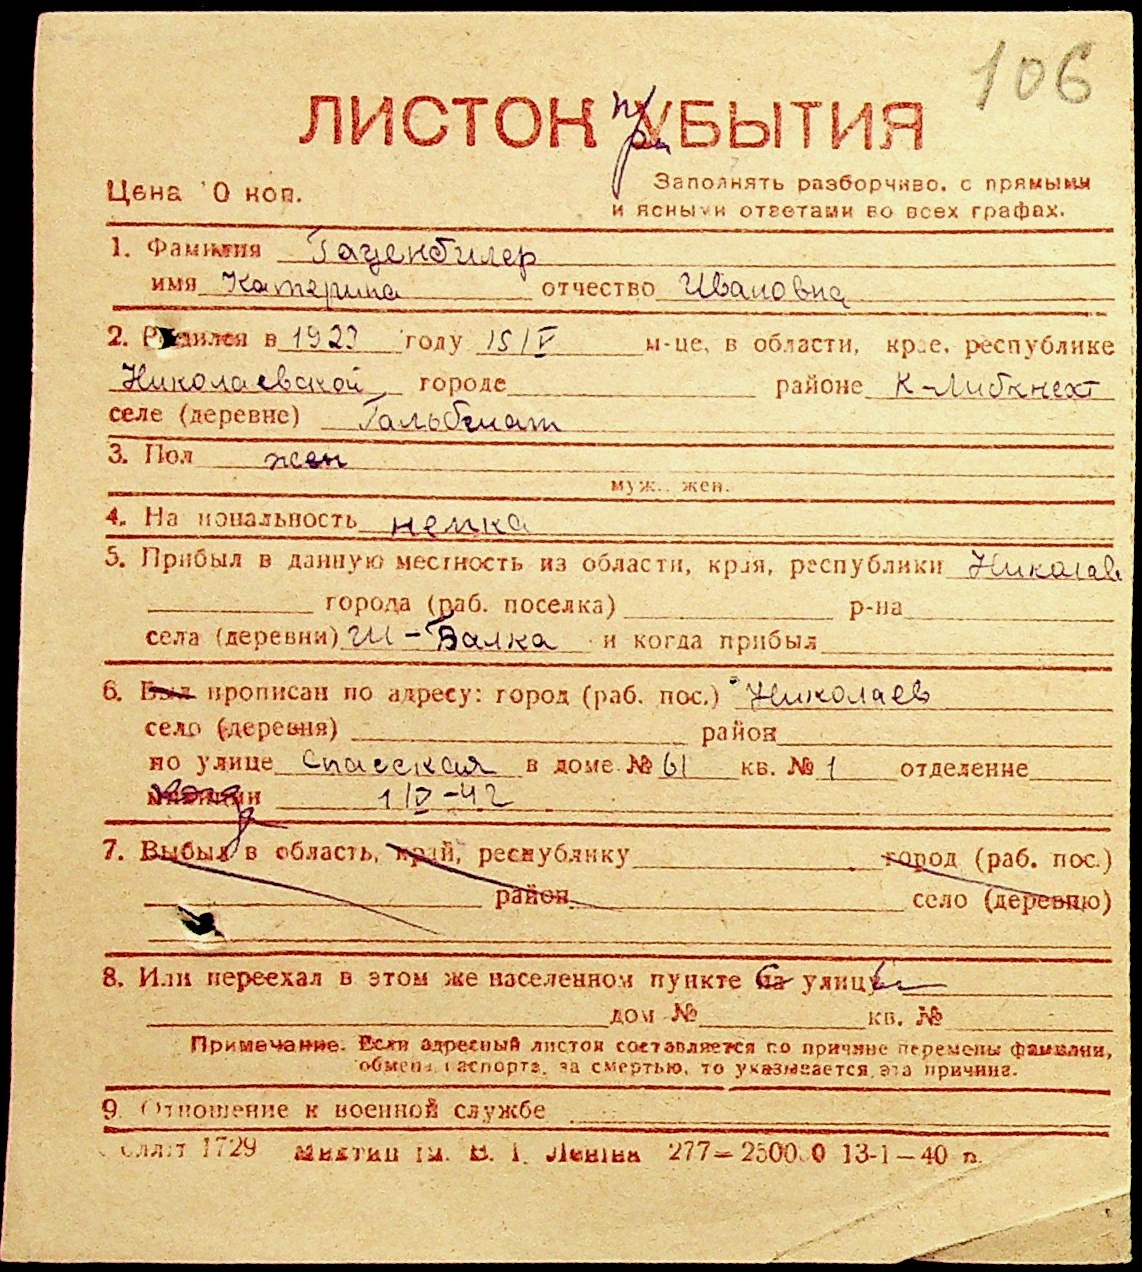 106
ЛИСТОК при УБЫТИЯ
Цена 10 коп.
Заполнять разборчиво, с прямыми
и ясными ответами во всех графах.
1. Фамилия Гаценбилер
имя Катерина отчество Ивановна
2. Родился в 1923 году 15/V м-це, в области, крае, республике
Николаевской городе районе К-Либкнехт
селе (деревне) Гальбштат
3. Пол жен
муж., жен.
4. Национальность немка
5. Прибыл в данную местность из области, края, республики Николаев
города (раб. поселка) р-на
села (деревни) Ш-Балка и когда прибыл
6. Был прописан по адресу: город (раб. пос.) Николаев
село (деревня) район
по улице Спасская в доме № 61 кв. № 1 отделение
милиции 1/IV-42
7. Выбыл в область, край, республику город (раб. пос.)
район село (деревню)
8. Или переехал в этом же населенном пункте на улицу
дом № кв. №
Примечание. Если адресный листок составляется по причине перемены фамилии,
обмена паспорта, за смертью, то указывается эта причина.
9. Отношение к военной службе
1729 ім. В. І. Леніна 277— 13-1—40 п.